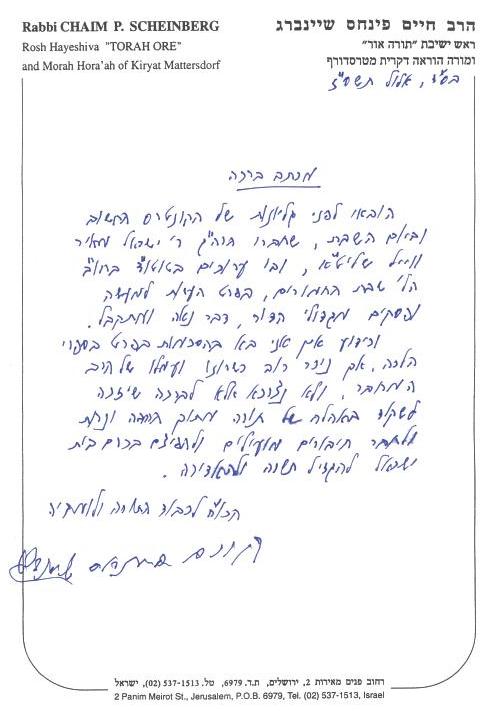 Rabbi CHAIM P. SCHEINBERG
Rosh Hayeshiva "TORAH ORE"
and Morah Hora'ah of Kiryat Mattersdorf
הרב חיים פינחס שיינברג
ראש ישיבת "תורה אור"
ומורה הוראה דקרית מטרסדורף
בס"ד, אלול תשס"ז
מכתב ברכה
הובאו לפני גליונות של הקונטרס החשוב
וביום השבת, שחברו הרה"ג ר' ישראל מאיר
ווייל שליט"א, ובו ערוכים בטוטו"ד ברוב
הל' שבת החמורים, בפרט הערות למעשה
ופסקים מגדולי הדור, דבר נאה ומתקבל.
וכידוע אין אני בא בהסכמות בפרט בספרי
הלכה, אך ניכר רוב כשרונו ועמלו של הרב
המחבר, ולא נצרכא אלא לברכה שיזכה
לשקוד באהלה של תורה מתוך הרחבה ונחת
ולחבר חיבורים מועילים ולהפיצם בכרם בית
ישראל להגדיל תורה ולהאדירה.
הכו"ח לכבוד התורה ולומדיה
חיים פינחס שיינברג
רחוב פנים מאירות 2, ירושלים, ת.ד. 6979, טל. 537-1513 (02), ישראל
2 Panim Meirot St., Jerusalem, P.O.B. 6979, Tel. (02) 537-1513, Israel